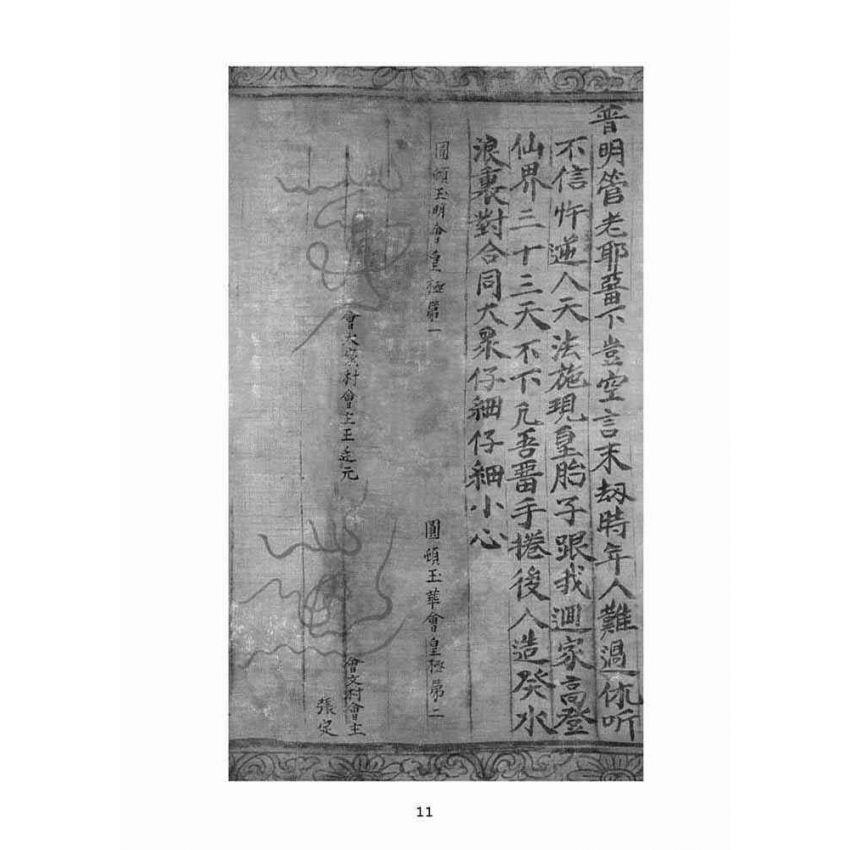 普明管老耶畱下豈空言末刼時年人難過休听
不信忤逆人天法施現皇胎子跟我迴家高登
仙界三十三天不下凡吾畱手捲後人造癸水
浪裏對合同大衆仔細仔細小心
圓頓玉明會皇極第一
圓頓玉華會皇極第二
會大寨村會主王廷元
會文村會主
張定
11